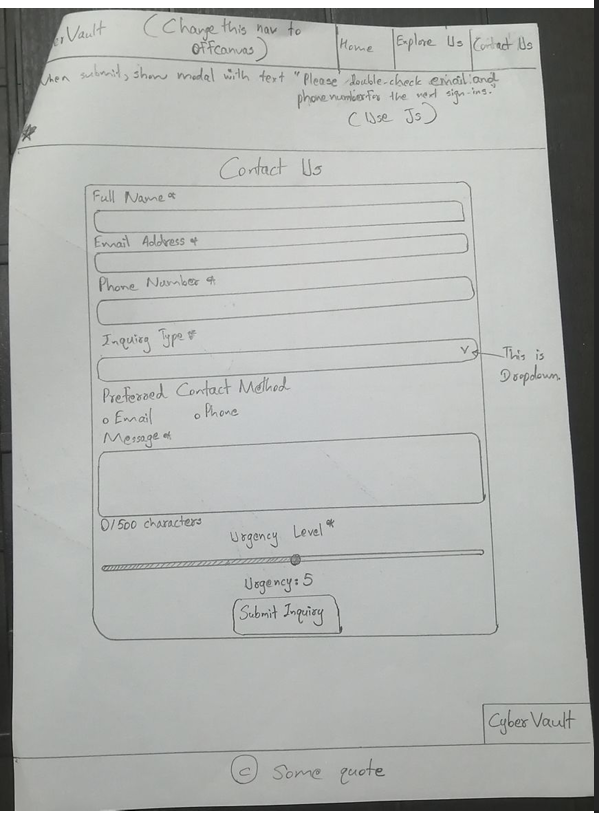 erVault (Change this nav to
offcanvas)
Home Explore Us Contact Us
When submit, show modal with text "Please double-check email and
phone number for the next sign-ins."
(Use Js)
Contact Us
Full Name*
Email Address *
Phone Number *
Inquiry Type *
v
This is
Dropdown.
Preferred Contact Method
Email Phone
Message *
0/500 characters
Urgency Level *
Urgency: 5
Submit Inquiry
CyberVault
© Some quote